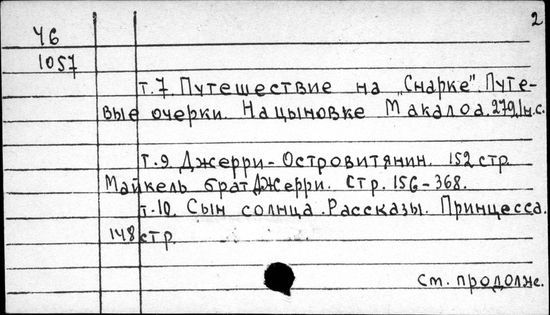 2
Ч6
1057
т.7. Путешествие на „Снарке". Путе-
вые очерки. На цыновке Макалоа. 279,1н.с.
т.9. Джерри-Островитянин. 152 стр.
Майкель брат Джерри. Стр. 156-368.
т.10. Сын солнца. Рассказы. Принцесса.
148 стр.
См. продолж.